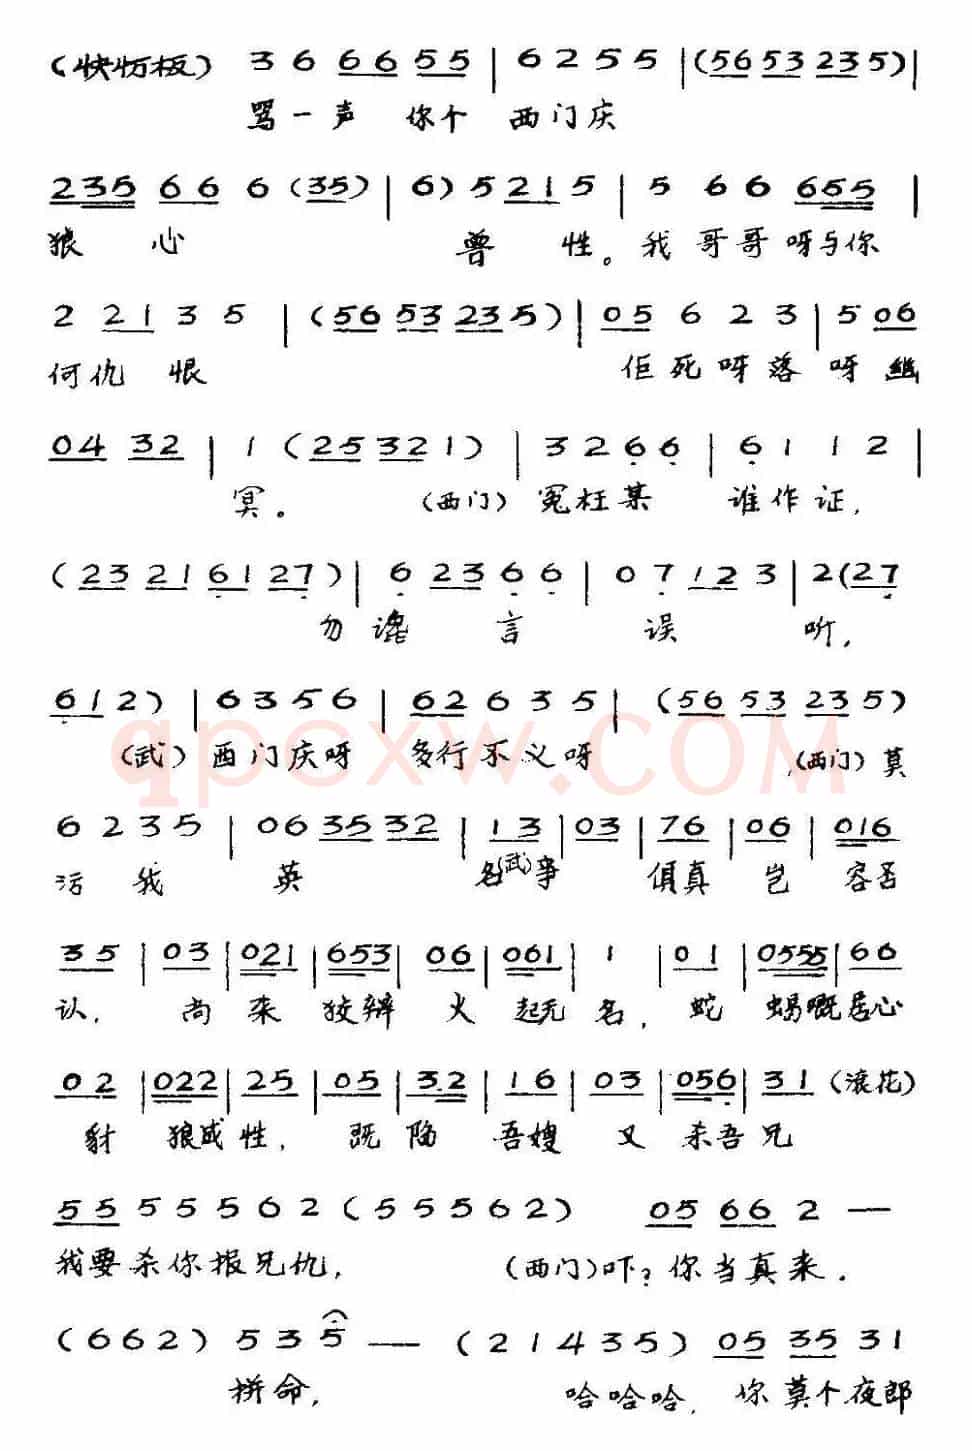 (快忉板) 3 6 6 6 5 5 | 6 2 5 5 | (5 6 5 3 2 3 5) |
骂一声 你个 西门庆
2 3 5 6 6 6 (3 5) | 6) 5 2 1 5 | 5 6 6 6 5 5 |
狼 心 兽 性。我 哥哥呀与你
2 2 1 3 5 | (5 6 5 3 2 3 5) | 0 5 6 2 3 | 5 0 6
何仇 恨 佢死呀落呀幽
0 4 3 2 | 1 (2 5 3 2 1) | 3 2 6 6 | 6 1 1 2 |
冥。 (西门) 冤枉某 谁作证,
(2 3 2 1 6 1 2 7) | 6 2 3 6 6 | 0 7 1 2 3 | 2 (2 7
勿谗 言 误 听,
6 1 2) | 6 3 5 6 | 6 2 6 3 5 | (5 6 5 3 2 3 5)
(武) 西门庆呀 多行不义呀 (西门) 莫
6 2 3 5 | 0 6 3 5 3 2 | 1 3 | 0 3 | 7 6 | 0 6 | 0 1 6
污 我 英 名(武)事 俱真 岂 容否
3 5 | 0 3 | 0 2 1 | 6 5 3 | 0 6 | 0 6 1 | 1 | 0 1 | 0 5 5 5 | 6 6
认, 尚 来 狡辩 火 起无 名, 蛇 蝎嘅居心
0 2 | 0 2 2 | 2 5 | 0 5 | 3. 2 | 1 6 | 0 3 | 0 5 6 | 3 1 (滚花)
豺 狼成性, 既 陷 吾嫂 又 杀吾兄
5 5 5 5 5 5 6 2 (5 5 5 6 2) 0 5 6 6 2 —
我要杀你报兄仇, (西门)吓?你当真来.
(6 6 2) 5 3 5 — (2 1 4 3 5) 0 5 3 5 3 1
拼命, 哈哈哈, 你莫个夜郎
qpcxw.com